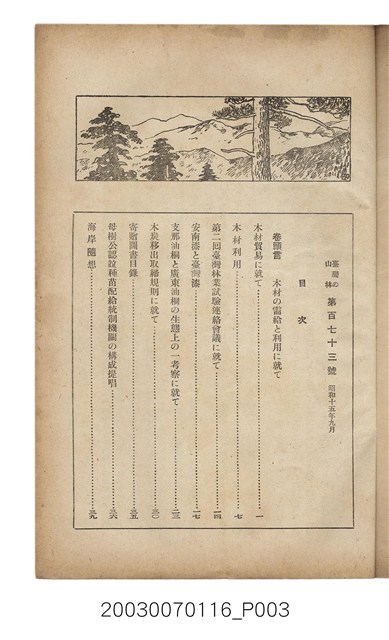 臺灣の山林 第百七十三號 昭和十五年九月
目次
卷頭言 木材の需給と利用に就て
木材貿易に就て 一
木材利用 七
第二回臺灣林業試驗連絡會議に就て 一四
安南漆と臺灣漆 一七
支那油桐と廣東油桐の生態上の一考察に就て 二三
木炭移出取締規則に就て 三〇
寄贈圖書目錄 三五
母樹公認竝種苗配給統制機關の構成提唱 三六
海岸隨想 三九
20030070116_P003